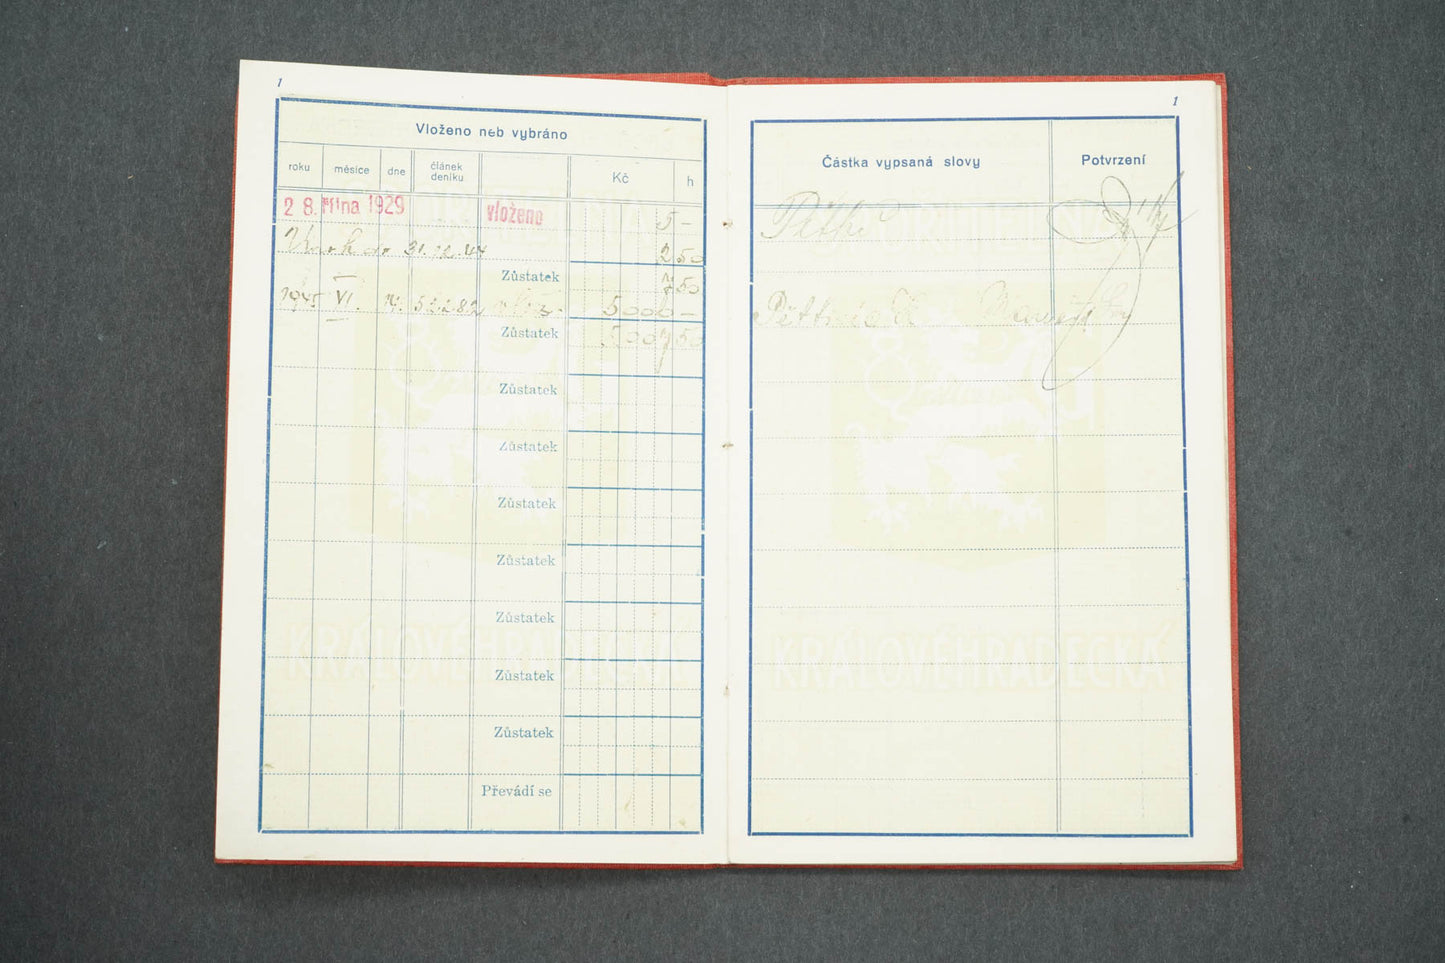 1
Vloženo neb vybráno
roku měsíce dne článek deníku Kč h
28. října 1929 vloženo 5 -
31.12.44 2 50
Zůstatek 7 50
1945 VI. 14. 5000 -
Zůstatek 5007 50
Zůstatek
Zůstatek
Zůstatek
Zůstatek
Zůstatek
Zůstatek
Zůstatek
Převádí se
KRÁLOVÉHRADECKÁ
1
Částka vypsaná slovy Potvrzení
KRÁLOVÉHRADECKÁ